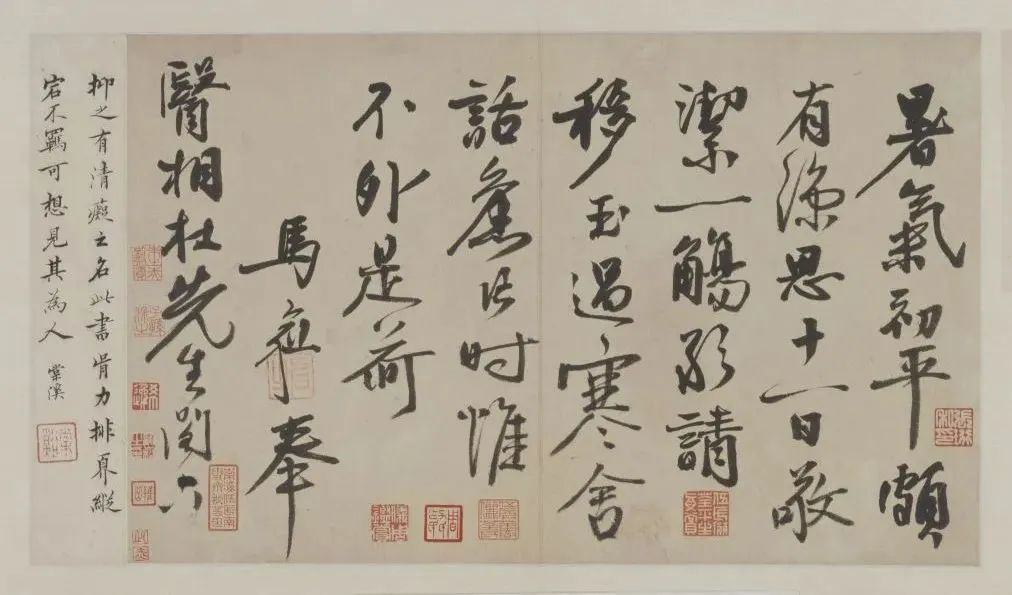 暑氣初平頗
有涼思十一日敬
潔一觴請
移玉過寒舍
話舊片时惟
不外是荷
馬愈奉
醫相杜先生閣下
抑之有清癡之名此書骨力排奡縱
宕不羈可想見其為人
棠溪